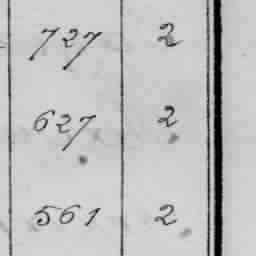 727 2
627 2
561 2